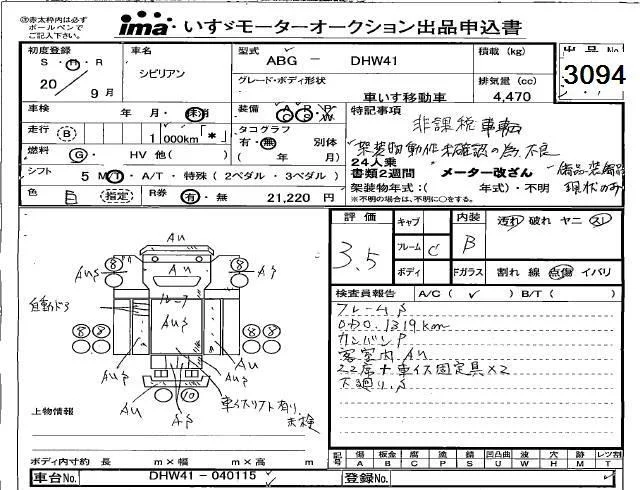 ㊟赤太枠内は必ず
ボールペンで
ご記入下さい。
ima いすゞモーターオークション出品申込書
初度登録
S・H・R
20 9月
車名
シビリアン
型式
ABG － DHW41
グレード・ボディ形状
車いす移動車
積載 (kg)
排気量 (cc)
4,470
出品No
3094
車検 年 月・抹消
装備 A P R W
特記事項
非課税車輌
架装物動作未確認の為、不良
24人乗
書類2週間 メーター改ざん
備品・装備品
現状のみ
架装物年式:( 年式)・不明
※不明の場合は、不明に○をする。
走行 B 1 000km「*」
タコグラフ
有・無 別体
( 年 月)
燃料 G・ HV 他( )
シフト 5 M T・A/T・特殊 (2ペダル・3ペダル)
色 白 指定
R券 有・無 21,220 円
評価 3.5
キャブ
フレーム C
ボディ
内装 B
Fガラス
汚れ 破れ ヤニ スレ
割れ 線 点傷 イバリ
検査員報告 A/C( ✓ ) B/T( )
フレームS
ODO.1319km
カンバンP
客室内AU
22席+車イス固定具×2
下廻り.S
AU
8 8
AU
AUS AS
フレーム
自動ドア
AUS
8 8 8 8
AU AU
AUS AUS
10
AU AS
車イスリフト有り
未検
上物情報
ボディ内寸約 長 m×幅 m×高 m
記号
傷 板金 腐 塗 錆 凹凸曲 波 穴 跡 レンズ割
A B C P S U W H M T
車台No. DHW41－040115
登録No.